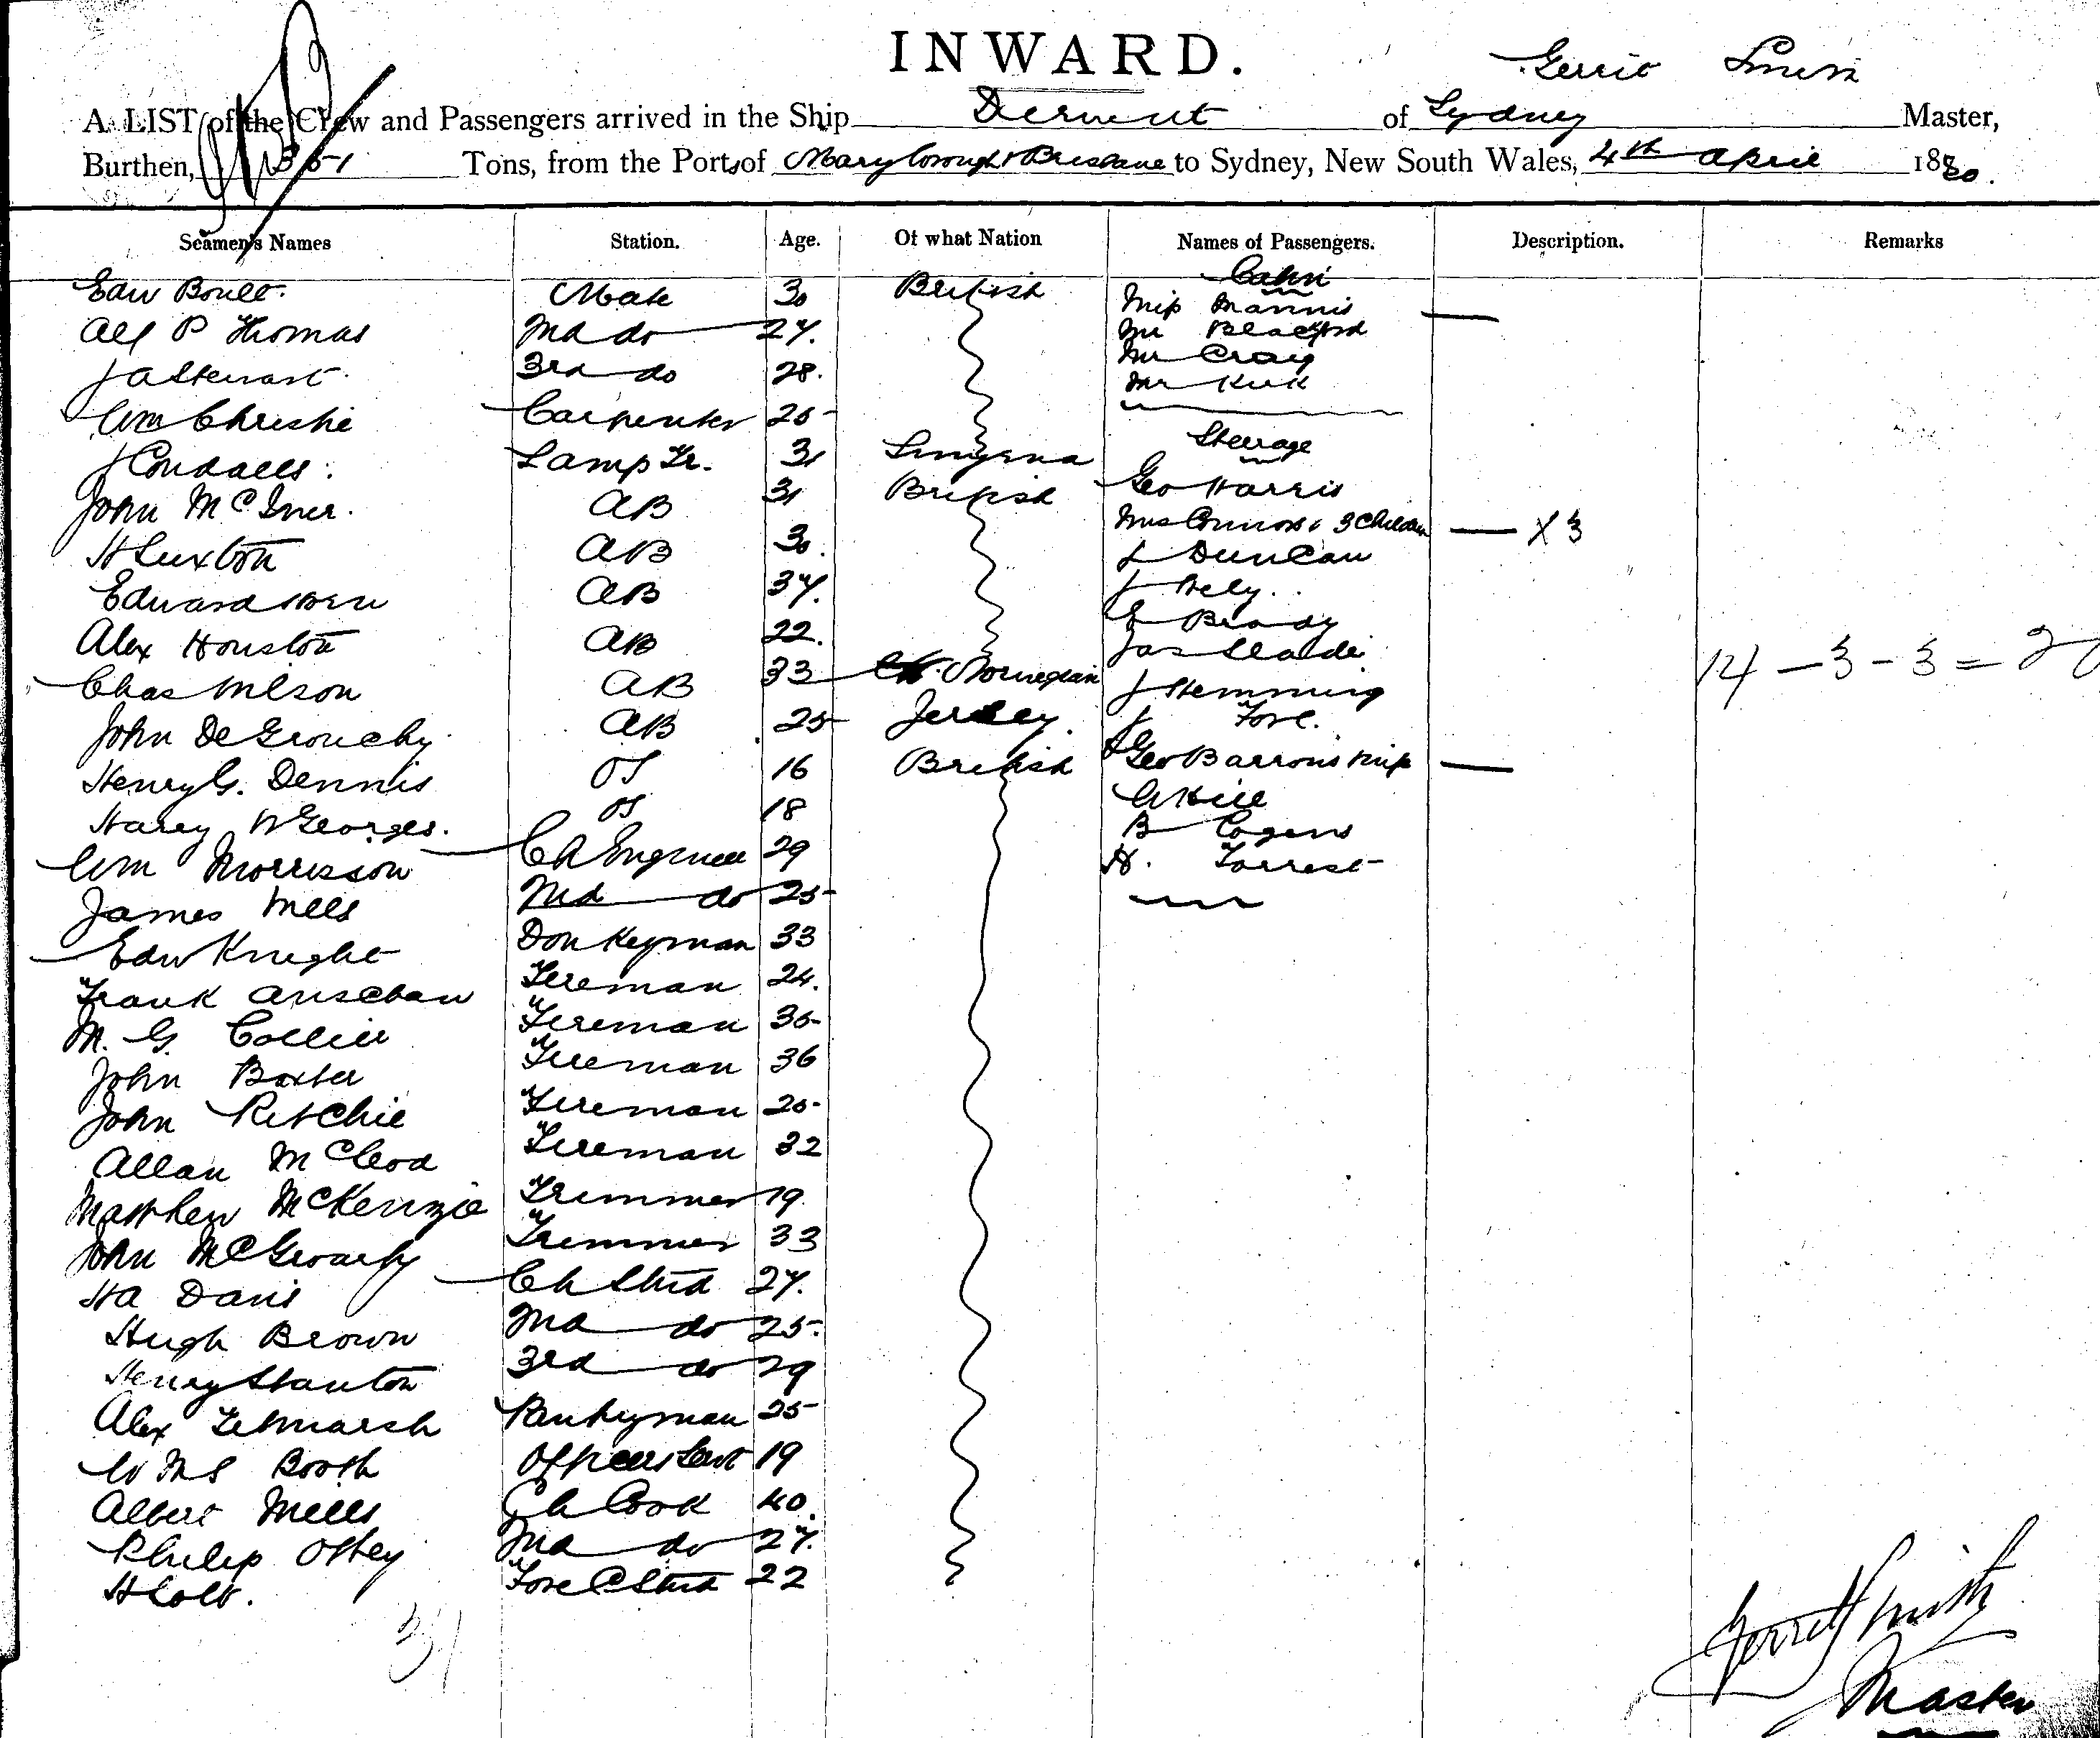 INWARD.
Gerrit Smith
A LIST of the Crew and Passengers arrived in the Ship Derwent of Sydney Master,
Burthen, 351 Tons, from the Ports of Maryborough & Brisbane to Sydney, New South Wales, 4th April 1880.
Seamen's Names Station. Age. Of what Nation Names of Passengers. Description. Remarks
Cabin
Edw Boult. Mate 30 British Miss Mannis
Alf P Thomas 2nd do 27. Mr Blackford
J A Stewart. 3rd do 28. Mr Craig
Mr Kirk
Wm Christie Carpenter 25
Steerage
J Condaees. Lamp Tr. 31 Smyrna Geo Harris
John McIver. AB 31 British Mrs Connors & 3 Children — X 3
H Luxton AB 30. J Duncan
Edward AB 37. J Hely.
E Brady
Alex Houston AB 22. Jas Slade 14 - 3 - 3 = 20
Chas Wilson AB 33 Norwegian J Hemming
John De Grouchy AB 25 Jersey. J Fore.
Henry G. Dennis OS 16 British Geo Barrows Miss
Harey W Georges. OS 18 W Hill
Wm Morrisson Ch Engineer 29 B Cogens
H. Forrest
James Mills 2nd do 25
Edw Knight Donkeyman 33
Frank Fireman 24.
M. G. Collier Fireman 35
John Baxter Fireman 36
John Ritchie Fireman 25
Allan McCleod Fireman 32
Matthew McKenzie Trimmer 19
John McGroarty Trimmer 33
H A Davis Ch Stwd 27.
Hugh Brown 2nd do 25.
Henry Stanton 3rd do 29
Alex Titmarsh Pantryman 25
W M S Booth Officers Servt 19
Albert Mills Ch Cook 40.
Philip Ottey 2nd do 27.
H Colt. Fore C Stwd 22
31
Gerrit Smith
Master